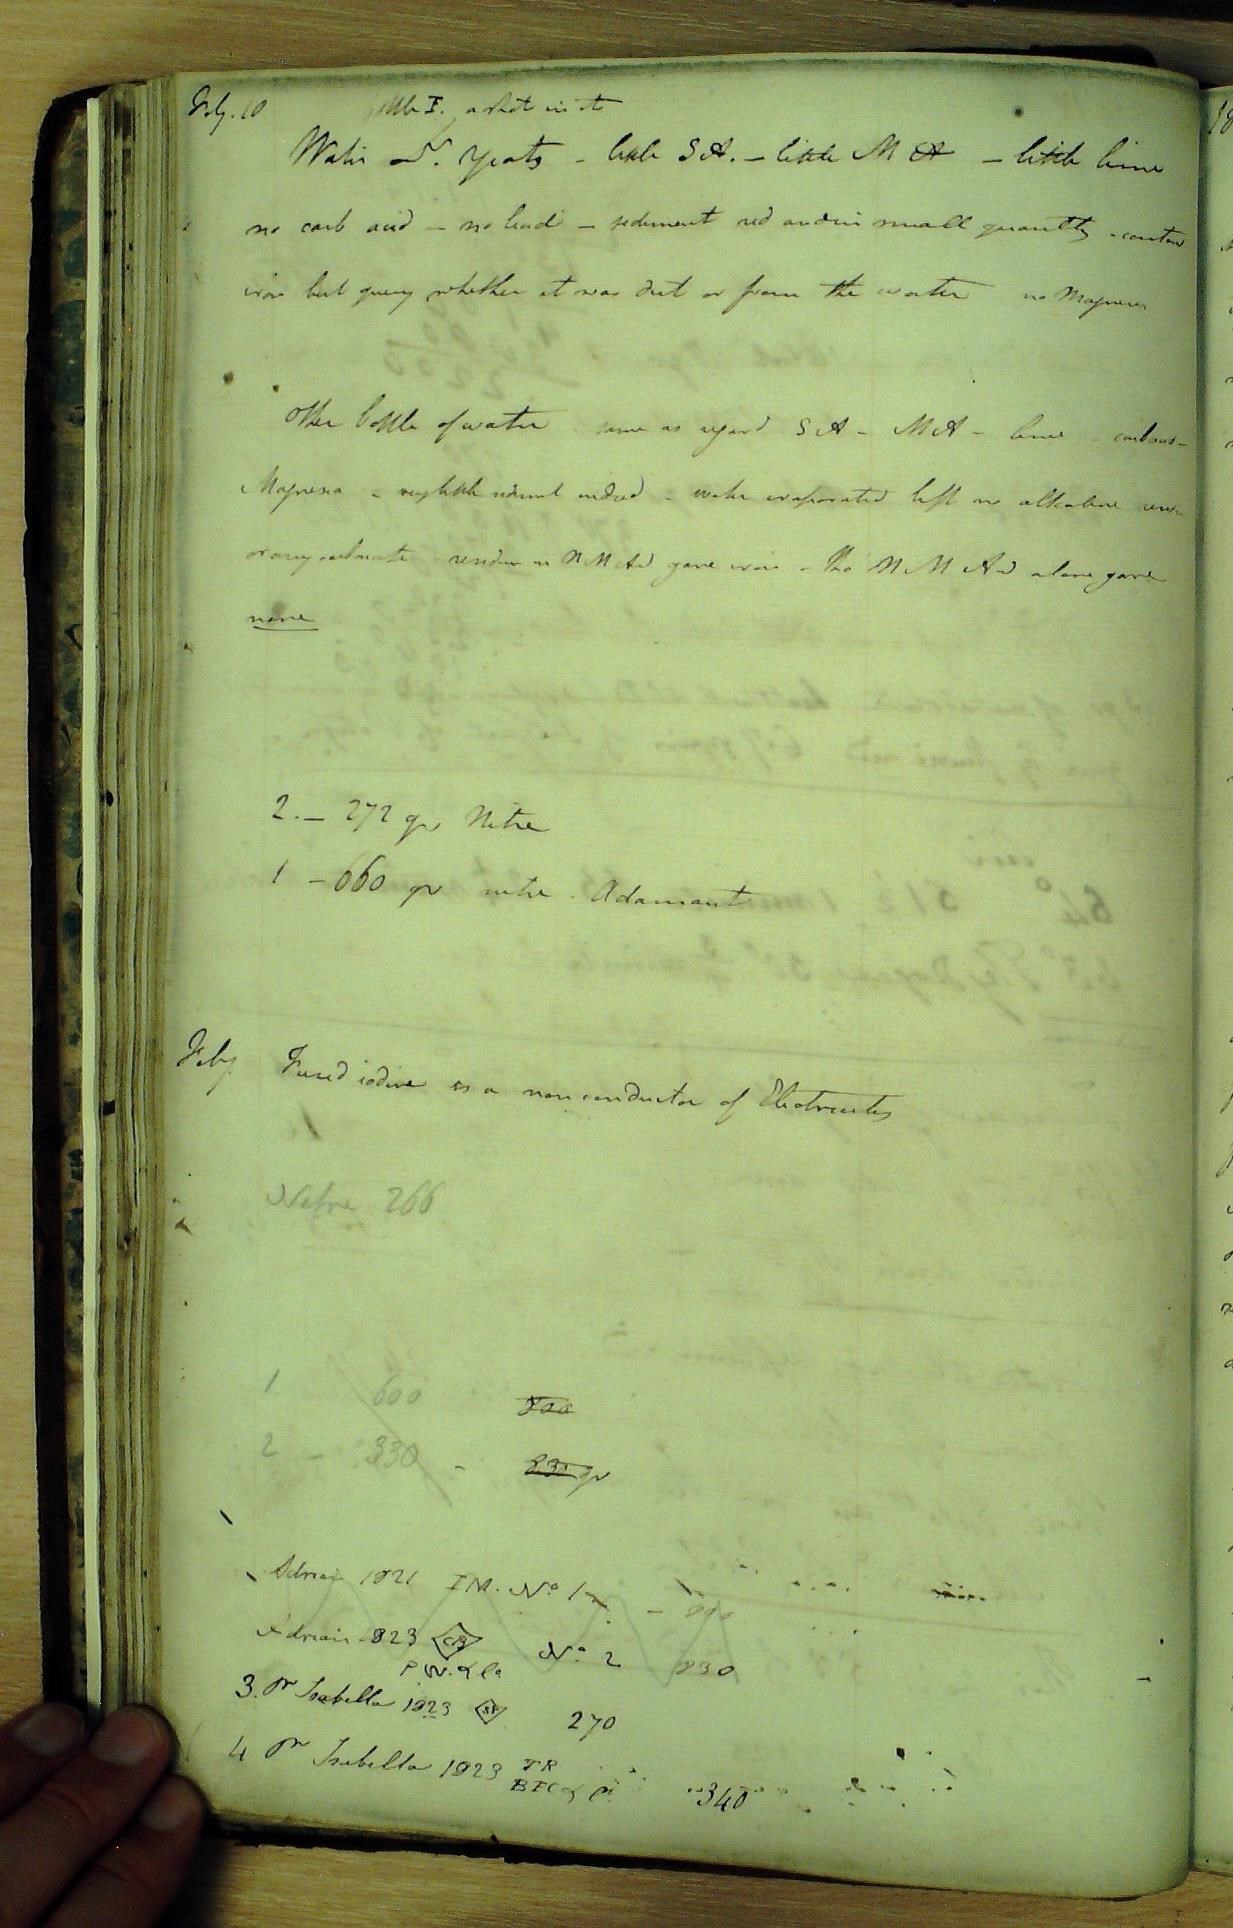 Feby. 10 bottle I. a shot in it
Water Dr. Yeats - little SA. - little MA - little lime
no carb acid - no lead - sediment red and in small quantity - contain
iron but query whether it was dirt or from the water no Magnesia
Other bottle of water same as regard SA - MA - lime - carbonic -
Magnesia - very little sediment indeed - water evaporated left no alkaline
or any carbonate - residue in N M Acid gave iron - the N M Acid alone gave
none
2. - 272 gr Nitre
1 - 660 gr nitre. Adamant
Feby Fused iodine is a non conductor of Electricity
Nitre 266
1 600 800
2 - 330 - 830 gr
Adrian 1821 IM. No 1 - 800
Adrian 1823 CB No 2 830
P W. & Co
3. Pr Isabella 1823 270
4 Pr Isabella 1823 TR 340
BFC &